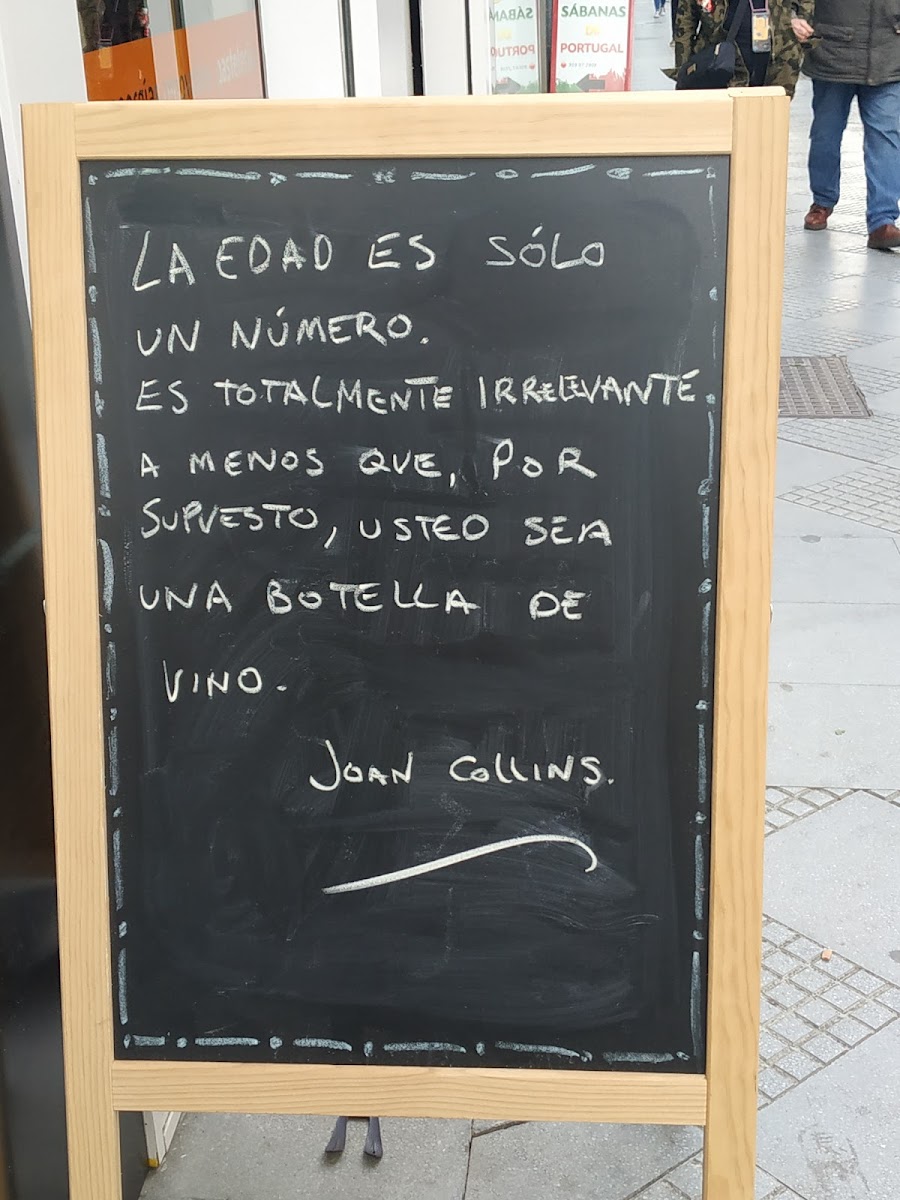 SÁBANAS
PORTUGAL
LA EDAD ES SÓLO
UN NÚMERO.
ES TOTALMENTE IRRELEVANTE
A MENOS QUE, POR
SUPUESTO, USTED SEA
UNA BOTELLA DE
VINO.
JOAN COLLINS.